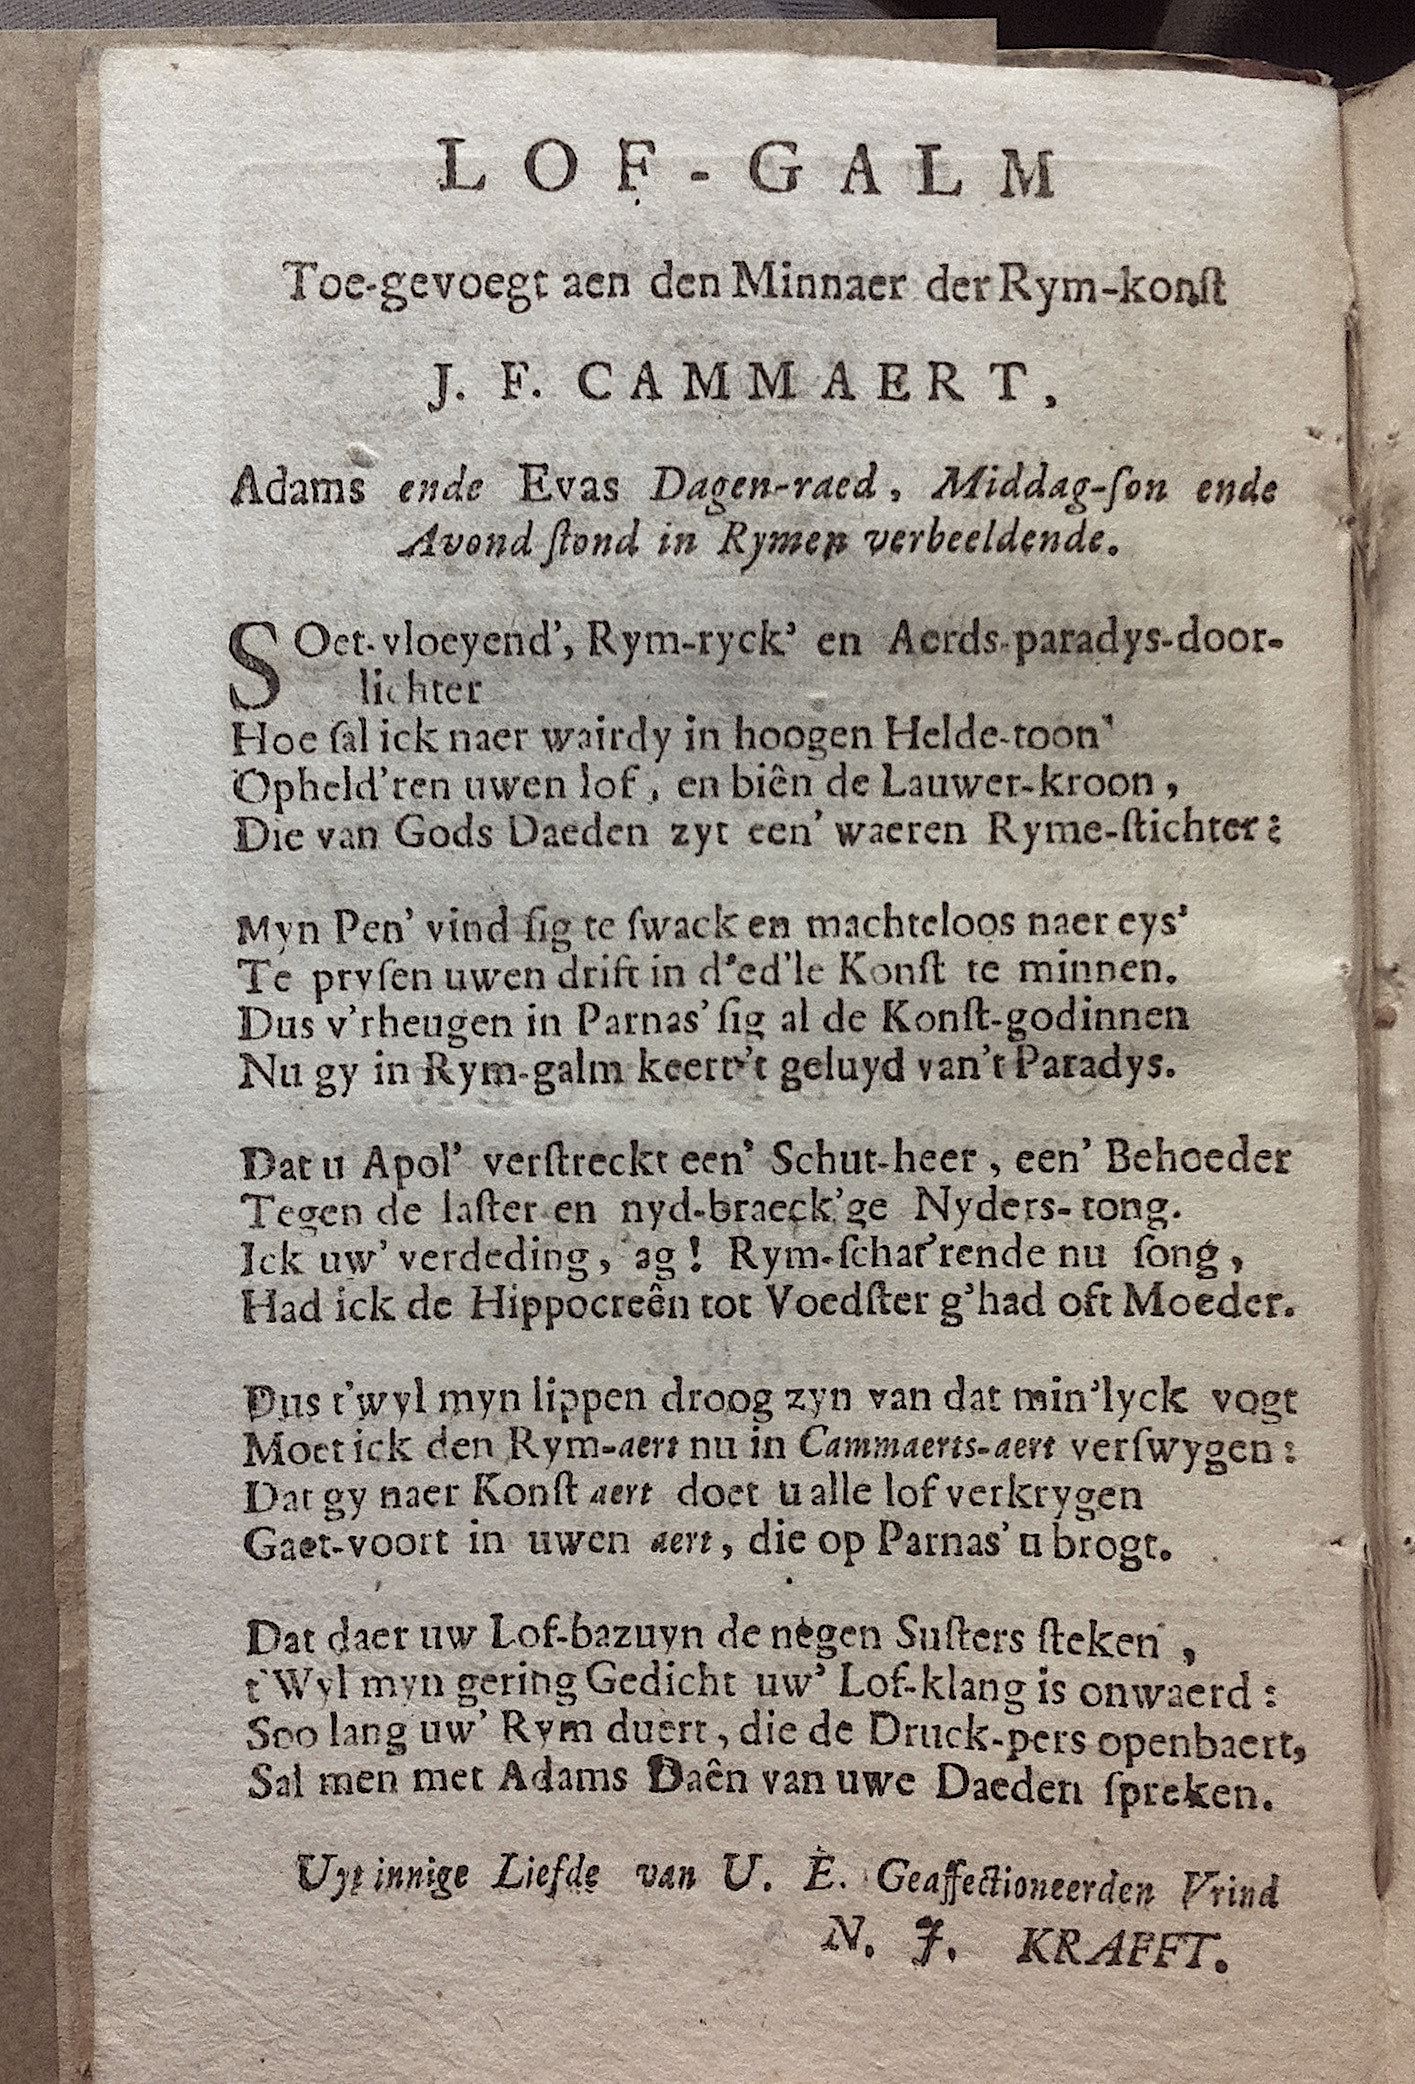 LOF-GALM
Toe-gevoegt aen den Minnaer der Rym-konſt
J. F. CAMMAERT,
Adams ende Evas Dagen-raed, Middag-ſon ende
Avond ſtond in Rymen verbeeldende.
SOet-vloeyend’, Rym-ryck’ en Aerds-paradys-door-
lichter
Hoe ſal ick naer wairdy in hoogen Helde-toon’
Opheld’ren uwen lof, en biên de Lauwer-kroon,
Die van Gods Daeden zyt een’ waeren Ryme-ſtichter?
Myn Pen’ vind ſig te ſwack en machteloos naer eys’
Te pryſen uwen drift in d’ed’le Konſt te minnen.
Dus v’rheugen in Parnas’ ſig al de Konſt-godinnen
Nu gy in Rym-galm keert’t geluyd van’t Paradys.
Dat u Apol’ verſtreckt een’ Schut-heer, een’ Behoeder
Tegen de laſter en nyd-braeck’ge Nyders-tong.
Ick uw’ verdeding, ag! Rym-ſchat’rende nu ſong,
Had ick de Hippocreên tot Voedſter g’had oft Moeder.
Dus t’wyl myn lippen droog zyn van dat min’lyck vogt
Moet ick den Rym-aert nu in Cammaerts-aert verſwygen:
Dat gy naer Konſt aert doet u alle lof verkrygen
Gaet-voort in uwen aert, die op Parnas’ u brogt.
Dat daer uw Lof-bazuyn de negen Suſters ſteken,
t’Wyl myn gering Gedicht uw’ Lof-klang is onwaerd:
Soo lang uw’ Rym duert, die de Druck-pers openbaert,
Sal men met Adams Daên van uwe Daeden ſpreken.
Uyt innige Liefde van U. E. Geaffectioneerden Vrind
N. J. KRAFFT.